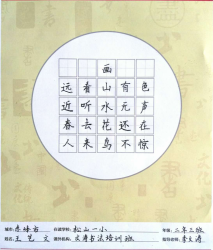 画
远看山有色
近听水无声
春去花还在
人来鸟不惊
城市:赤峰市 在读学校:松山一小 年级:二年三班
姓名:王艺文 培训机构:书法培训班